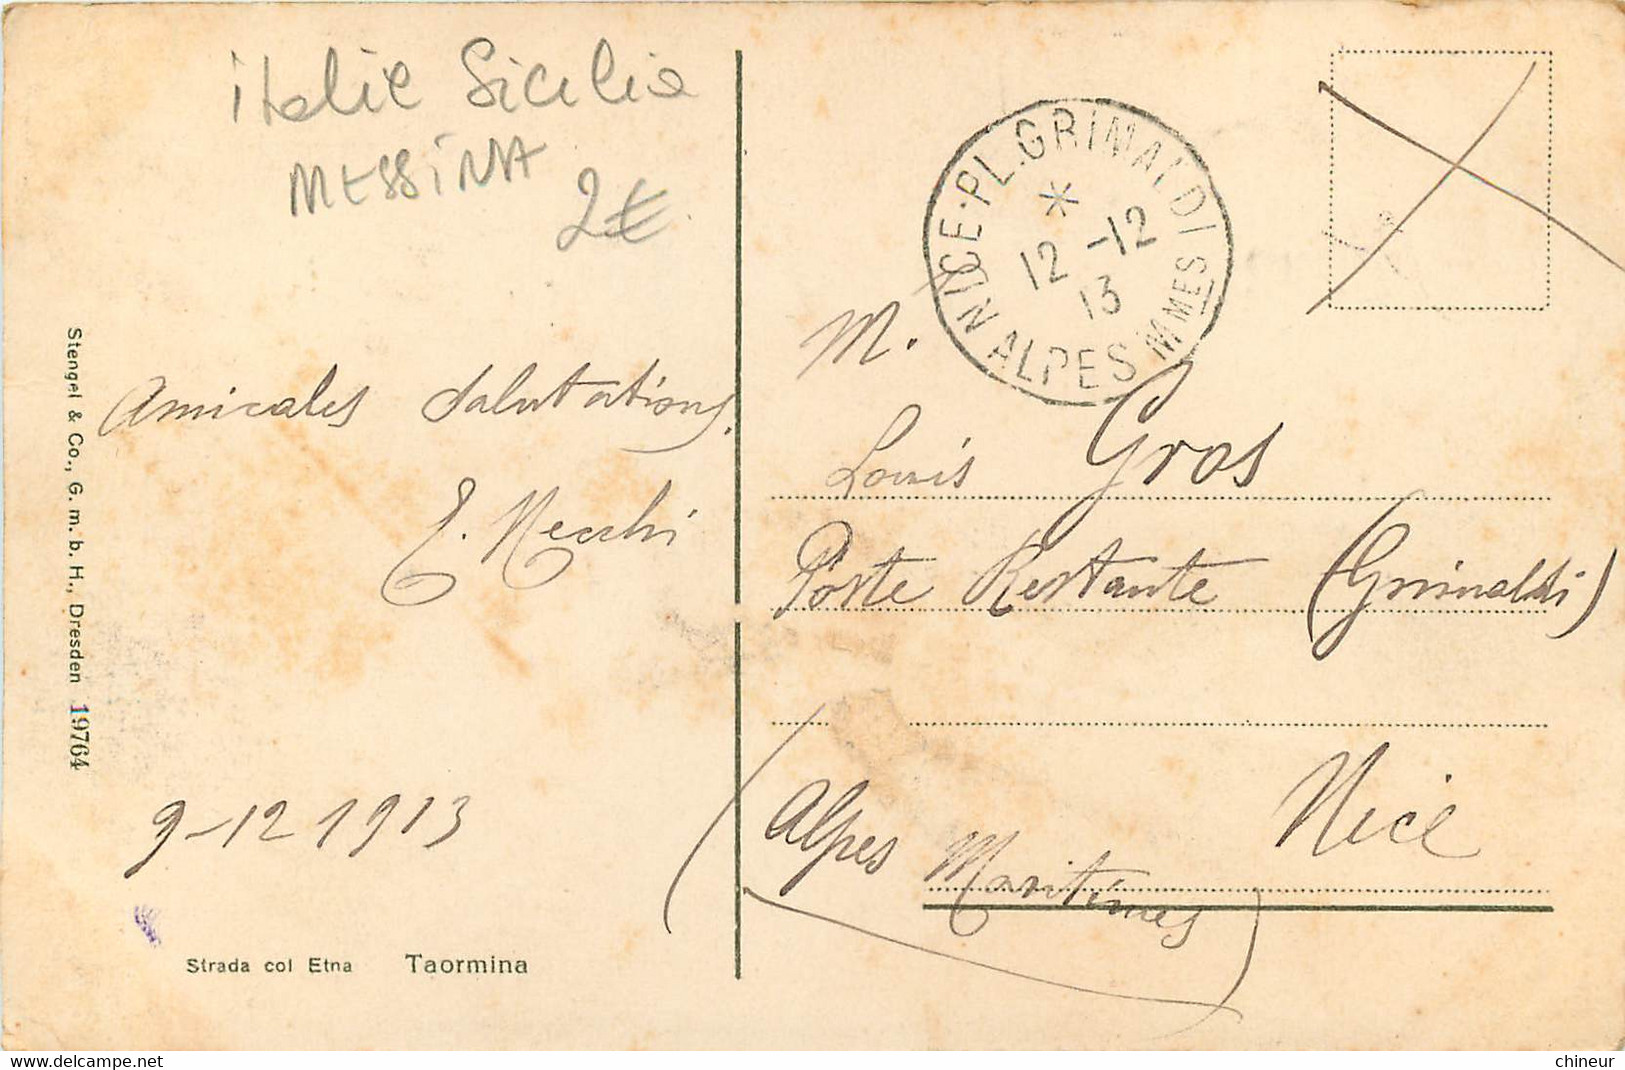 italie Sicilia
MESSiNA
2€
NICE-PL.GRIMALDI
*
12 -12
13
ALPES MMES
M.
Amicales Salutations.
Louis Gros
E. Necchi
Poste Restante (Grimaldi)
Nice
(Alpes Maritimes)
9-12 1913
Strada col Etna Taormina
Stengel & Co., G. m. b. H., Dresden 19764
delcampe.net
chineur